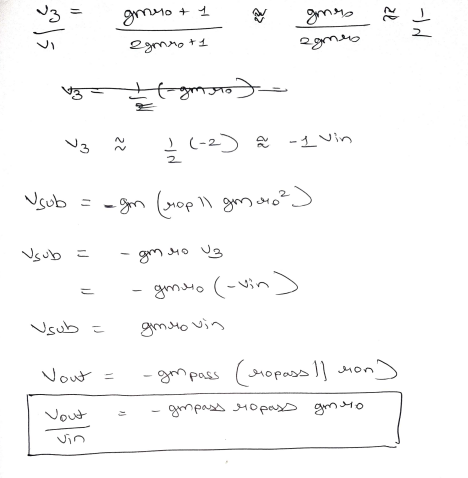 v3/v1 = (gmro + 1)/(2gmro + 1) ≈ gmro/2gmro ≈ 1/2
v3 = 1/2 (-gmro) =
v3 ≈ 1/2 (-2) ≈ -1 vin
Vsub = -gm (rop || gmro²)
Vsub = - gmro v3
= - gmro (-vin)
Vsub = gmro vin
Vout = - gmpass (ropass || ron)
Vout/Vin = - gmpass ropass gmro